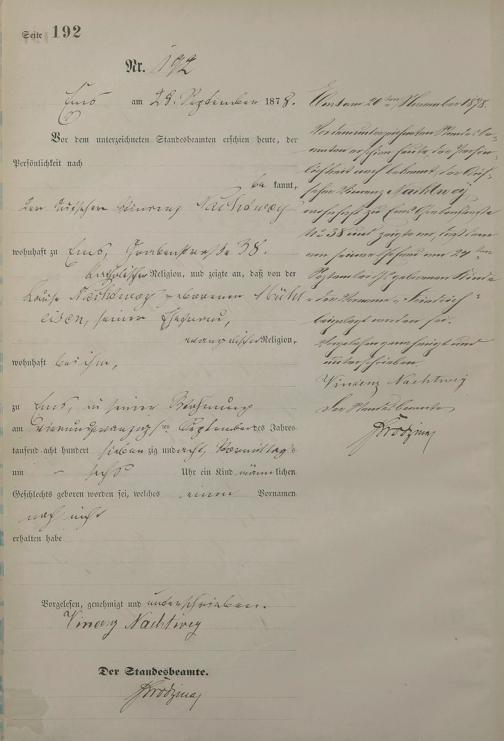 Seite 192
Nr. 192
Ems am 28. September 1878.
Vor dem unterzeichneten Standesbeamten erschien heute, der
Persönlichkeit nach
be kannt,
der Kutscher Vincenz Nachtweÿ
wohnhaft zu Ems, Grabenstraße 38.
katholischer Religion, und zeigte an, daß von der
Louise Nachtweÿ geborenen Mühl
eisen, seiner Ehefrau,
evangelischer Religion,
wohnhaft bei ihm,
zu Ems, in seiner Wohnung
am vierundzwanzigsten September des Jahres
tausend acht hundert sieben zig und acht, Vormittags
um – sechs Uhr ein Kind männlichen
Geschlechts geboren worden sei, welches einen Vornamen
noch nicht
erhalten habe
Vorgelesen, genehmigt und unterschrieben.
Vincenz Nachtweÿ
Der Standesbeamte.
Ems am 20ten November 1878.
Vor dem unterzeichneten Standesbe-
amten erschien heute, der Persön-
lichkeit nach bekannt, der Kut-
scher Vincenz Nachtweÿ,
wohnhaft zu Ems Grabenstraße
No 38 und zeigte an, daß dem
von seiner Ehefrau am 24ten
September geborenen Kinde
der Vorname Friedrich
beigelegt worden sei.
Vorgelesen genehmigt und
unterschrieben
Vincenz Nachtweÿ
Der Standesbeamte